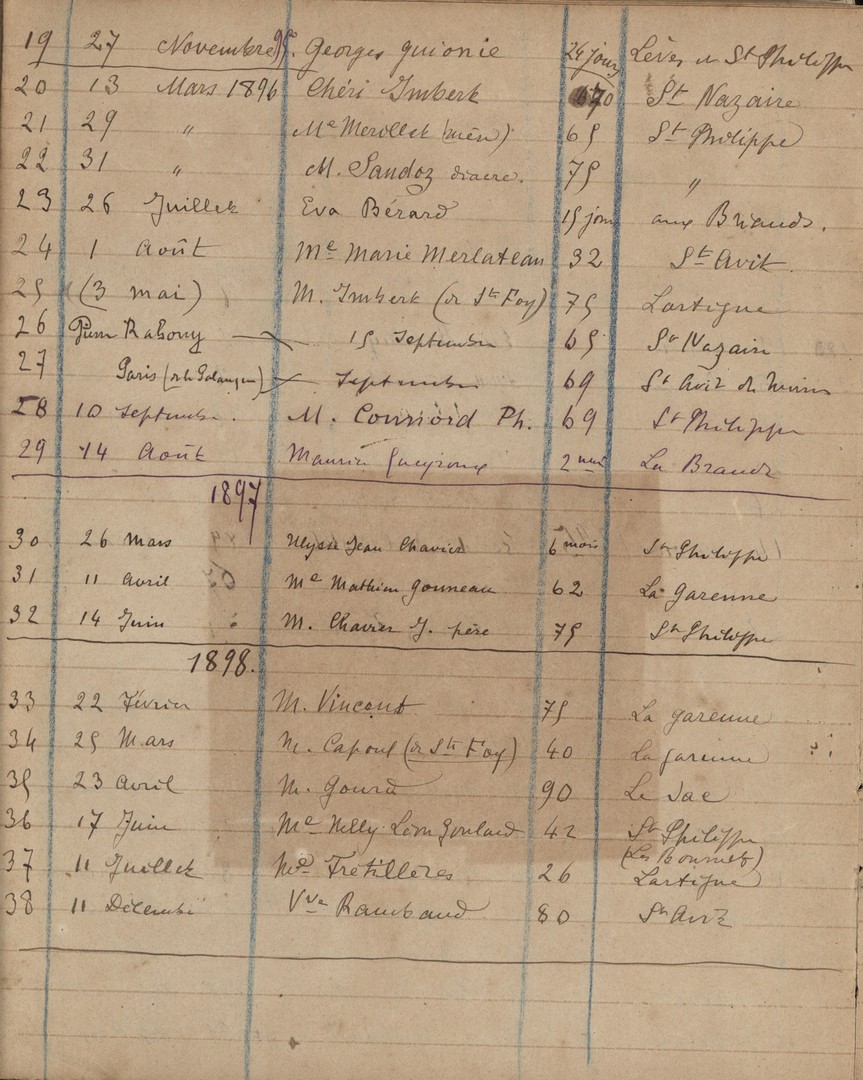 19 27 Novembre 95. Georges Guionie 24 jours Lèves et St Philippe
20 13 Mars 1896 Chéri Imbert 70 St Nazaire
21 29 " Me Merillet (mère) 65 St Philippe
22 31 " M. Sandoz diacre. 75 "
23 26 Juillet Eva Bérard 15 jours aux Briauds.
24 1 Août Me Marie Merlateau 32 St Avit
25 (3 mai) M. Imbert (de Ste Foy) 75 Lartigue
26 Pierre Rabouy 15 Septembre 65 St Nazaire
27 Paris Septembre 69 St Avit de
28 10 Septembre. M. Counord Ph. 69 St Philippe
29 14 Août Maurice Gueyroux 2 mois La Braude
1897
30 26 Mars Ulysse Jean Chavier 6 mois St Philippe
31 11 Avril Me Mathieu Gouneau 62 La Garenne
32 14 Juin M. Chavier J. père 75 St Philippe
1898.
33 22 Février M. Vincent 75 La Garenne
34 25 Mars M. Capoul (de Ste Foy) 40 La Garenne
35 23 Avril M. Gourd 90 Le Sac
36 17 Juin Me Nelly Léon Goulard 42 St Philippe
(Les Bournets)
37 11 Juillet Me Frétillères 26 Lartigue
38 11 Décembre Vve Rambaud 80 St Avit